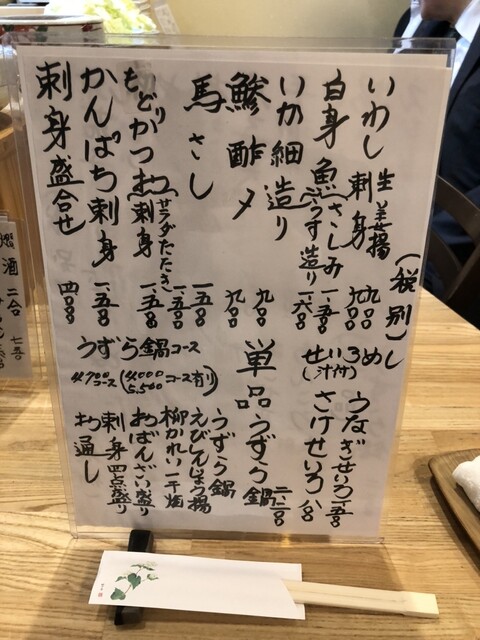 (税別)
いわし 生姜揚 九〇〇
刺身 九〇〇
白身魚 さしみ 一、五〇
うす造り 一、六〇〇
いか細造り 九〇〇
鯵酢〆 九〇〇
馬さし 一、五〇〇
もどりかつお サラダたたき 一、五〇〇
刺身 一、五〇〇
かんぱち刺身 一、五〇
刺身盛合せ 四、〇〇〇
せいろめし
(汁付)
うなぎせいろ 二、五〇
さけせいろ 八〇〇
単品
うずら鍋 二、二〇〇
うずら鍋コース
4,700コース(4,000 5,500コース有り)
うずら鍋
えびしんじょう揚
柳かれい一干焼
おばんざい盛り
刺身四点盛り
お通し
酒 二合 七五〇